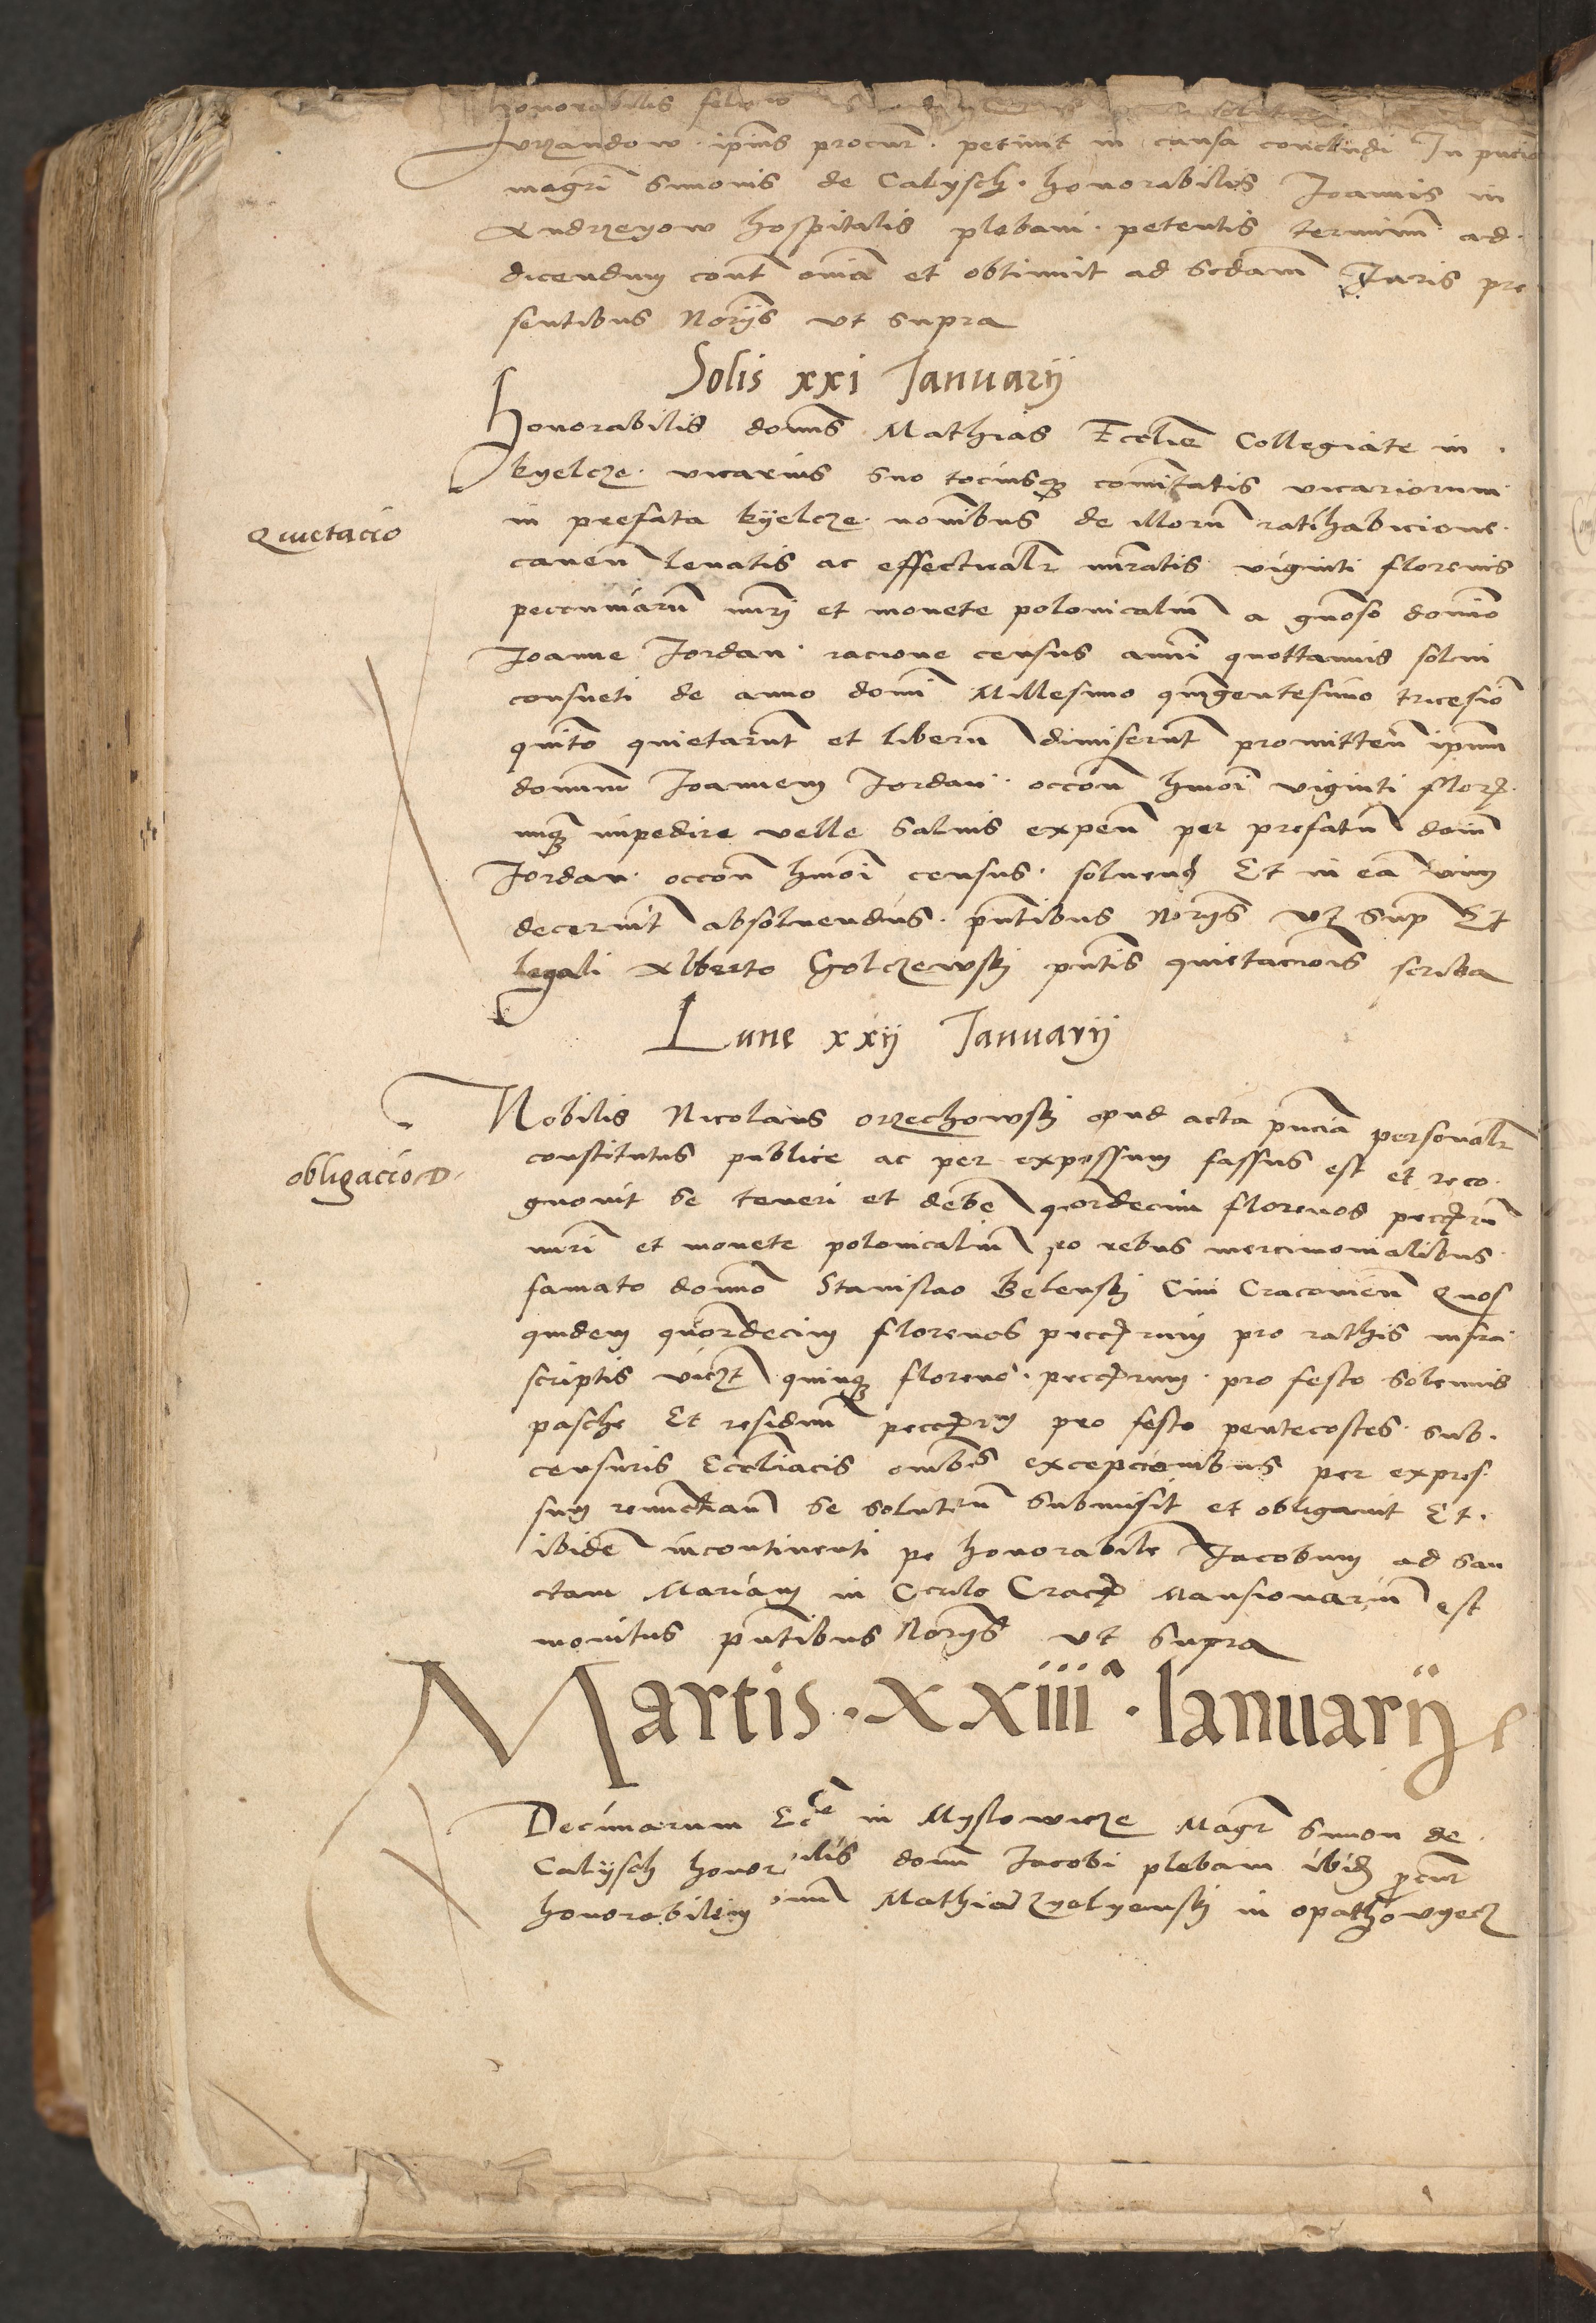 honorabilis
Vrzandow ipius procur petiuit in causa concludi In pncia
magri Simonis de Calysch honorabilis Joannis in
Andrzeyow hospitalis plebani petentis terminum ad
dicendum cont omia et obtinuit ad scdam Juris pre
sentibus Norys vt supra
Solis xxi Januarij
Honorabilis domns Mathias Ecclie Collegiate in
kyelcze vicarius suo tociusq comitatis vicariorum
Quietacio
in prefata kyelcze nomibus de illorum ratihabicione
caven leuatis ac effectualr nuratis viginti florenis
pecuniarum nuri et monete polonicalium a gnoso domno
Joanne Jordan racione census anni quottannis solui
consueti de anno domi Millesimo quingentesimo tricesio
quito quietarunt et liberum dimiserunt promitten ipsum
domnum Joannem Jordan occon hmoi viginti flor
nuq impedire velle saluis expen per prefatum dom
Jordan occon hmoi census soluend Et in ea vim
decernit absoluendus pntibus Norys vt sup Et
legali Alberto Golczewsky pntis quietacionis scriba
Lune xxij Januarij
Nobilis Nicolaus orzechowsky apud acta pncia personalr
constitutus publice ac per expressum fassus est et reco
obligacio
gnouit se teneri et debe quordecim florenos peccrum
nuri et monete polonicalium pro rebus mercimonialibus
famato domno Stanislao Belensky Ciui Cracouien Quos
quidem quordecim florenos peccrum pro rathis infra
scriptis viczt quinq floreno peccrum pro festo solennis
pasche Et residuum peccrum pro festo pentecostes sub
censuris Eccliacis omibs excepcionibus per expres
sum renuctian se soluturum submisit et obligauit Et
ibidem incontinenti per honorabile Jacobum ad san
ctam Mariam in Circulo Crac Mansionarium est
monitus pntibus Norys vt supra
Martis xxiii Januarij
Decimarum Ecce in Myslowicze Magr Simon de
Calysch honor ilis domi Jacobi plebani ibid pcur
honorabilem Mathia Zyelyensky in opathowyecz